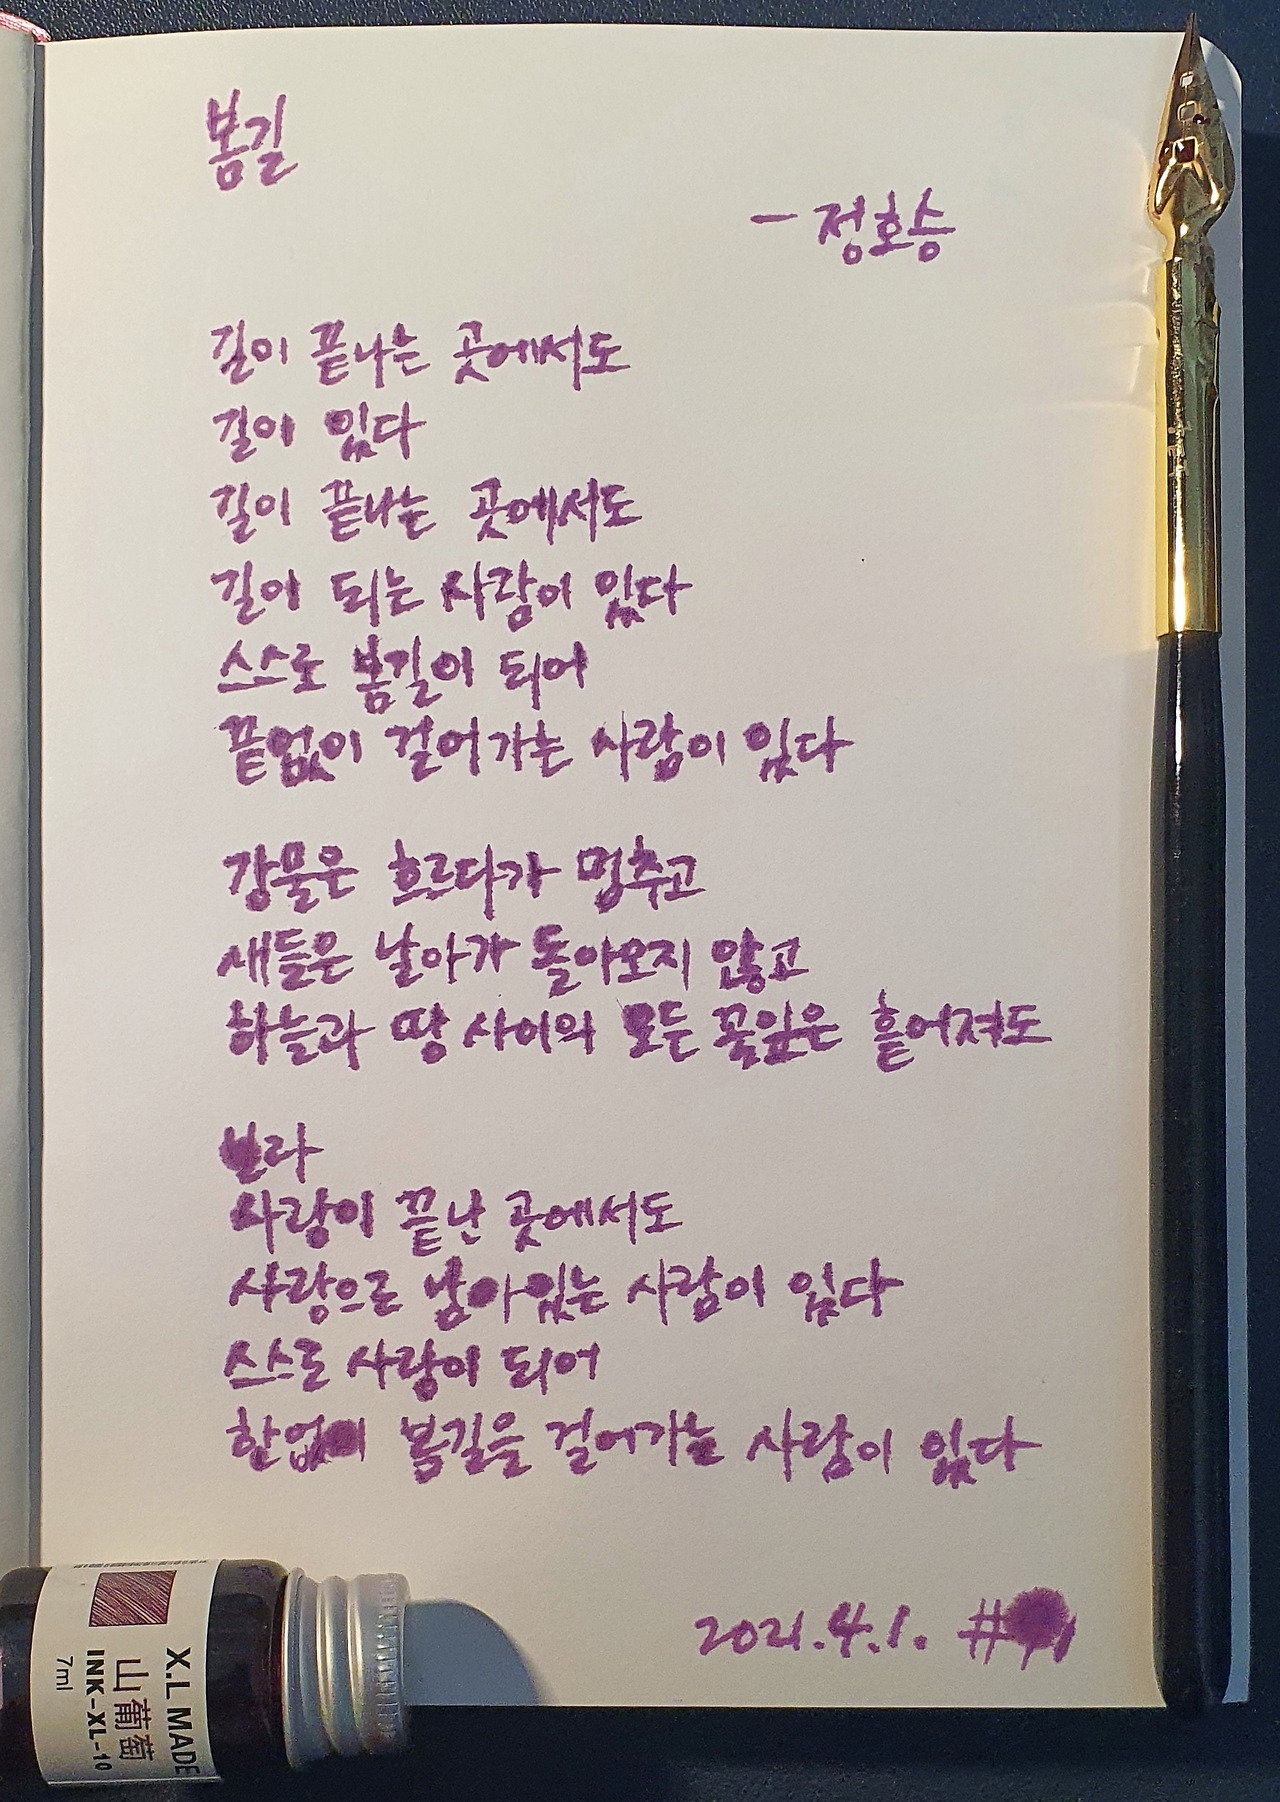 봄길
- 정호승
길이 끝나는 곳에서도
길이 있다
길이 끝나는 곳에서도
길이 되는 사람이 있다
스스로 봄길이 되어
끝없이 걸어가는 사람이 있다
강물은 흐르다가 멈추고
새들은 날아가 돌아오지 않고
하늘과 땅 사이의 모든 꽃잎은 흩어져도
보라
사랑이 끝난 곳에서도
사랑으로 남아있는 사람이 있다
스스로 사랑이 되어
한없이 봄길을 걸어가는 사람이 있다
2021.4.1.
X.L MADE
山葡萄
INK-XL-10
7ml